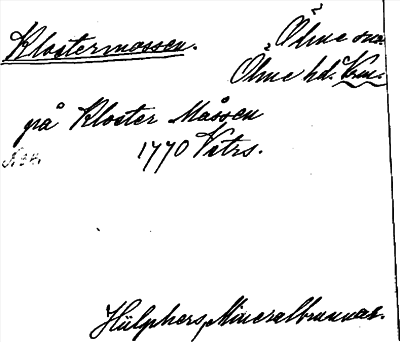 Klostermossen.
Öhne sn.
Öhne hd. Vrm.
på Kloster Måssen
1770 Vstrs.
Hülphers, Mineralbrunnar.